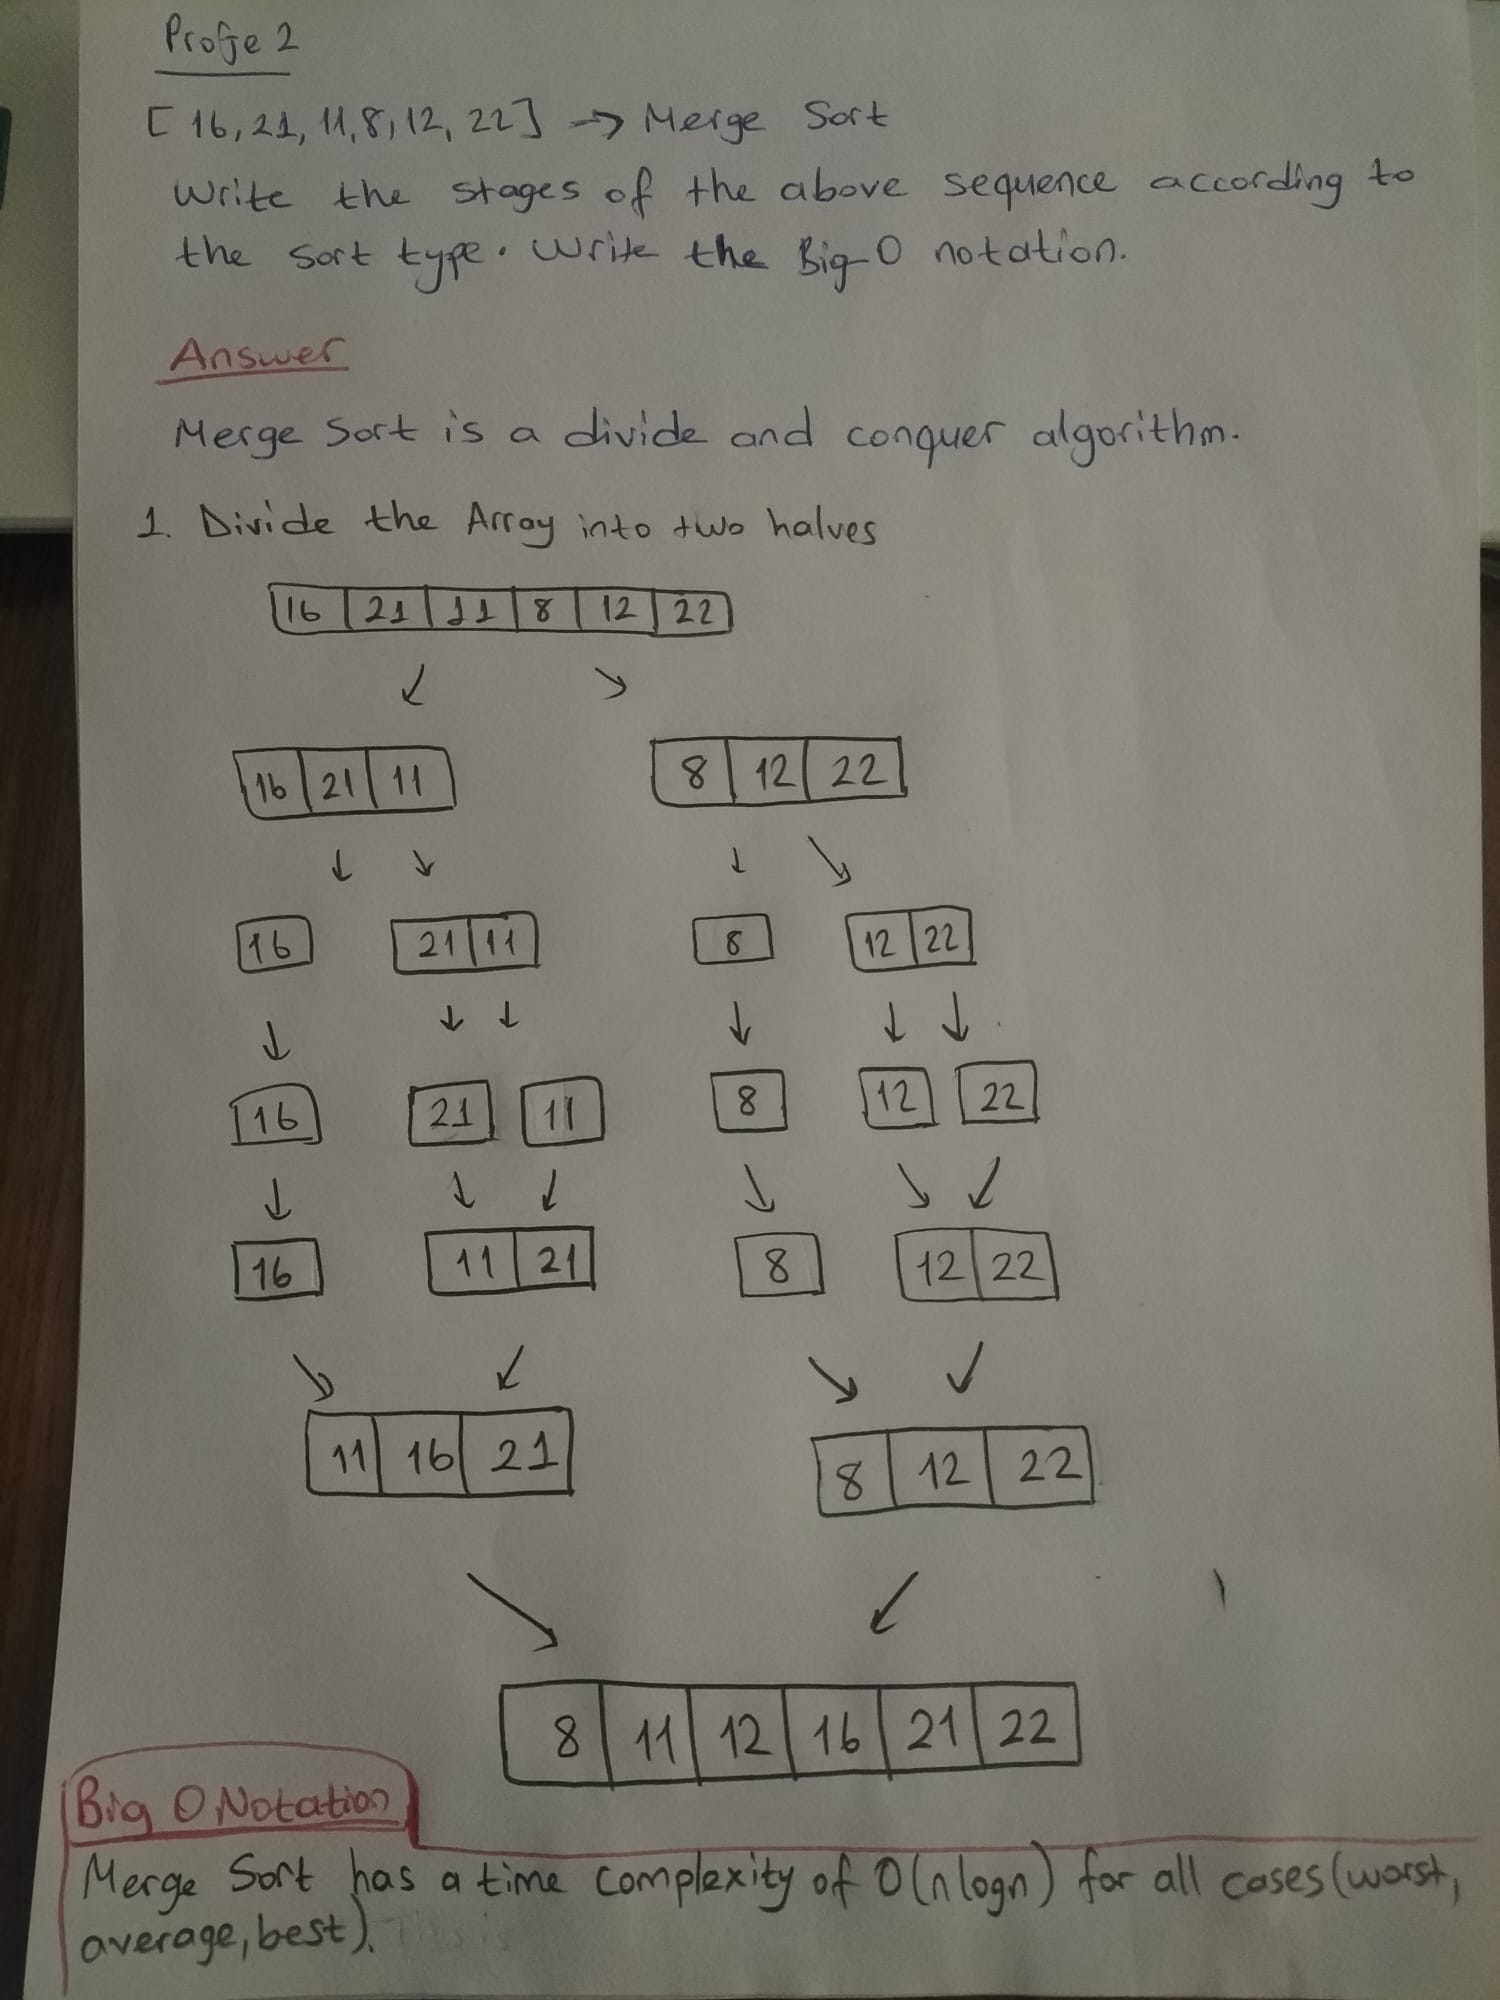 Profje 2
[16, 21, 11, 8, 12, 22] → Merge Sort
Write the stages of the above sequence according to
the sort type. Write the Big-O notation.
Answer
Merge Sort is a divide and conquer algorithm.
1. Divide the Array into two halves
16 21 11 8 12 22
16 21 11 8 12 22
16 21 11 8 12 22
16 21 11 8 12 22
16 11 21 8 12 22
11 16 21 8 12 22
8 11 12 16 21 22
Big O Notation
Merge Sort has a time complexity of O(n logn) for all cases (worst,
average, best). This is